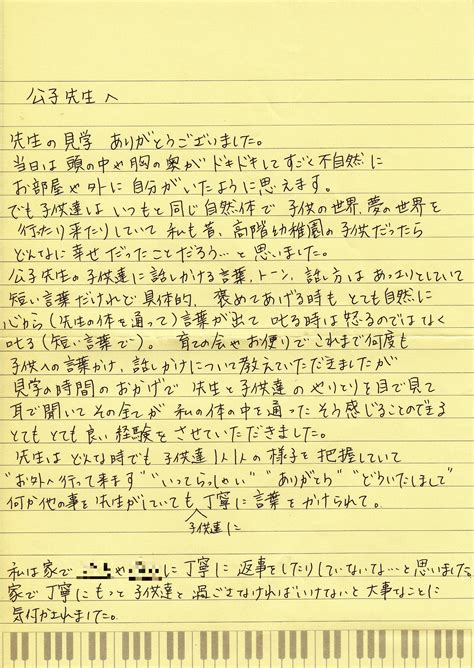 公子先生へ
先生の見学 ありがとうございました。
当日は 頭の中や胸の奥がドキドキしてすごく不自然に
お部屋や外に自分がいたように思えます。
でも子供達は いつもと同じ自然体で 子供の世界、夢の世界を
行ったり来たりしていて 私も昔、高階幼稚園の子供だったら
どんなに幸せだったことだろう…と思いました。
公子先生の子供達に話しかける言葉、トーン、話し方は あっさりとしていて
短い言葉だけれど具体的、褒めてあげる時も とても自然に
心から(先生の体を通って)言葉が出て 叱る時は怒るのではなく
叱る(短い言葉で)。 育ての会やお便りでこれまで何度も
子供への言葉かけ、話しかけについて教えていただきましたが
見学の時間のおかげで 先生と子供達のやりとりを目で見て
耳で聞いて その全てが 私の体の中を通った そう感じることのできる
とてもとても良い経験をさせていただきました。
先生はどんな時でも子供達1人1人の様子を把握していて
"お外へ行って来ます" "いってらっしゃい" "ありがとう" "どういたしまして"
何か他の事を先生がしていても 子供達に 丁寧に言葉をかけられて。
私は家で や に丁寧に 返事をしたりしていないな…と思いました。
家で丁寧にもっと子供達と過ごさなければいけないと 大事なことに
気付かされました。